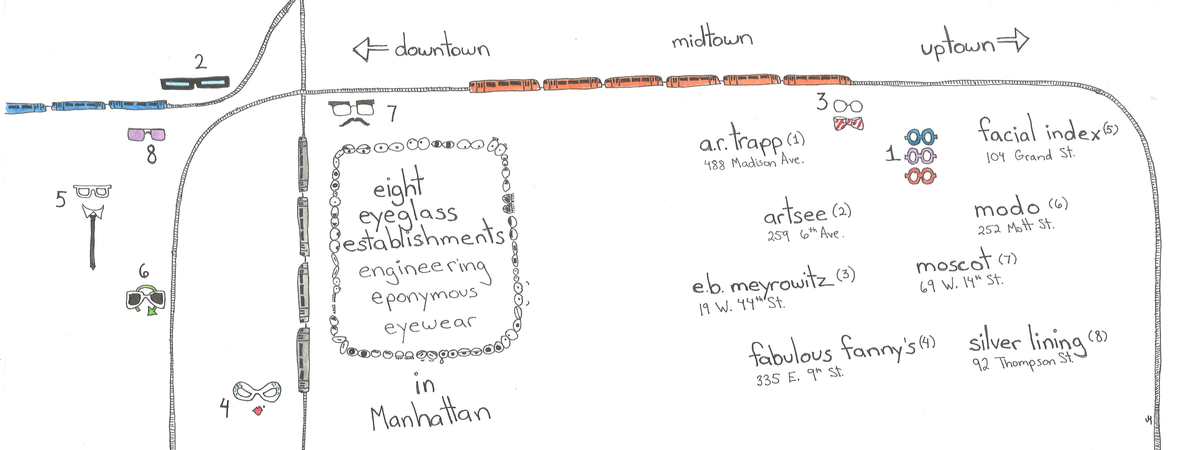 downtown
midtown
uptown
2
8
5
6
4
7
3
1
eight
eyeglass
establishments
engineering
eponymous
eyewear
in
Manhattan
a.r. trapp (1)
488 Madison Ave.
artsee (2)
259 6th Ave.
e.b. meyrowitz (3)
19 W. 44th St.
fabulous fanny's (4)
335 E. 9th St.
facial index (5)
104 Grand St.
modo (6)
252 Mott St.
moscot (7)
69 W. 14th St.
silver lining (8)
92 Thompson St.